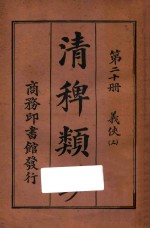 第二十册
義俠(上)
清稗類
商務印書館發行